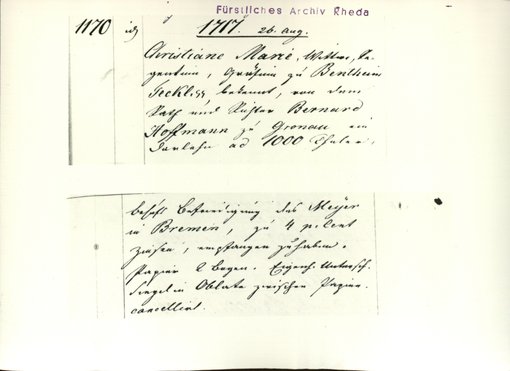 Fürstliches Archiv Rheda
1170 id. 1717. 26. Aug.
Christiane Marie, Wittwe, Re-
gentinn, Gräfinn zu Bentheim
Tecklbg bekennt, von dem
Rath und Richter Bernard
Hoffmann zu Gronau ein
Darlehn ad 1000 Thaler,
behufs Befriedigung des Meyer
in Bremen, zu 4 p. Cent
Zinsen, empfangen zu haben.
Papier 2 Bogen. Eigenh. Untersch.
Siegel in Oblate zwischen Papier.
cancellirt.